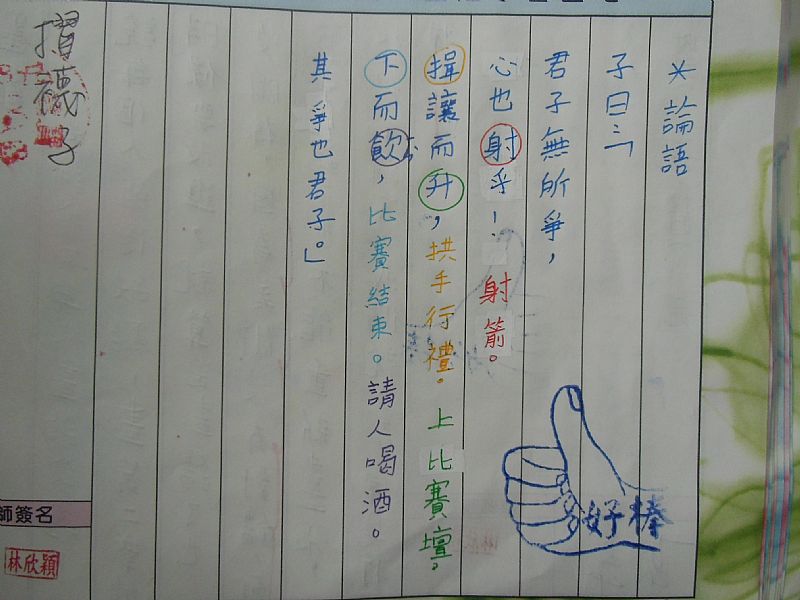 ＊論語
子曰：「
君子無所爭，
心也射乎！射箭。
揖讓而升，拱手行禮。上比賽壇。
下而飲，比賽結束。請人喝酒。
其爭也君子。」
好棒
摺襪子
師簽名
林欣穎